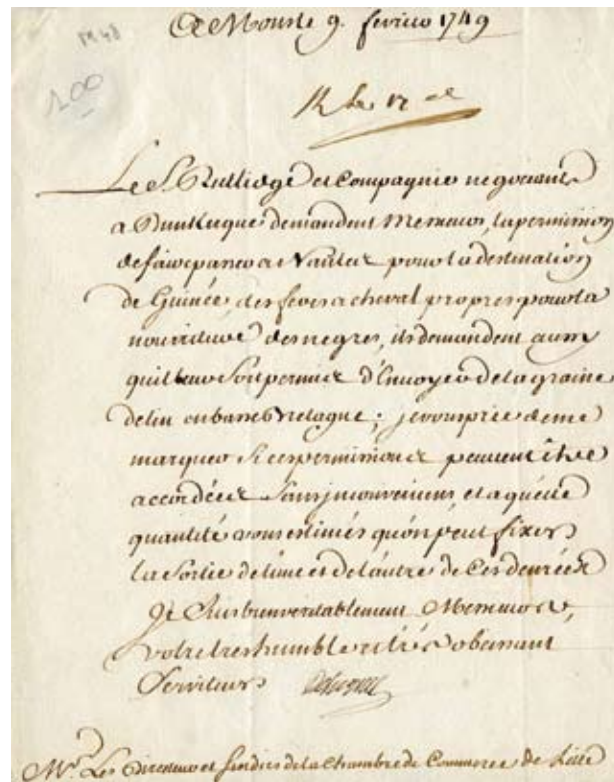 M 48
100
A 9. fevrier 1749
R le 12
Le S. Rutlidge et Compagnie negociants
a Dunkerque demandent Messieurs, la permission
de faire passer a Nantes pour la destination
de Guinée, des feves a cheval propres pour la
nourriture des negres, ils demandent aussy
quil leur soit permis d'Envoyer de la graine
de lin en basse Bretagne; je vous prie de me
marquer si ces permissions peuvent être
accordées sans inconvenient et a quelle
quantité vous estimés qu'on peut fixer
la Sortie de l'une et de l'autre de Ces denrées
Je suis bien veritablement Messieurs,
votre tres humble et tres obeissant
Serviteur
Mrs. Les Directeur et sindics de la Chambre de Commerce de Lille